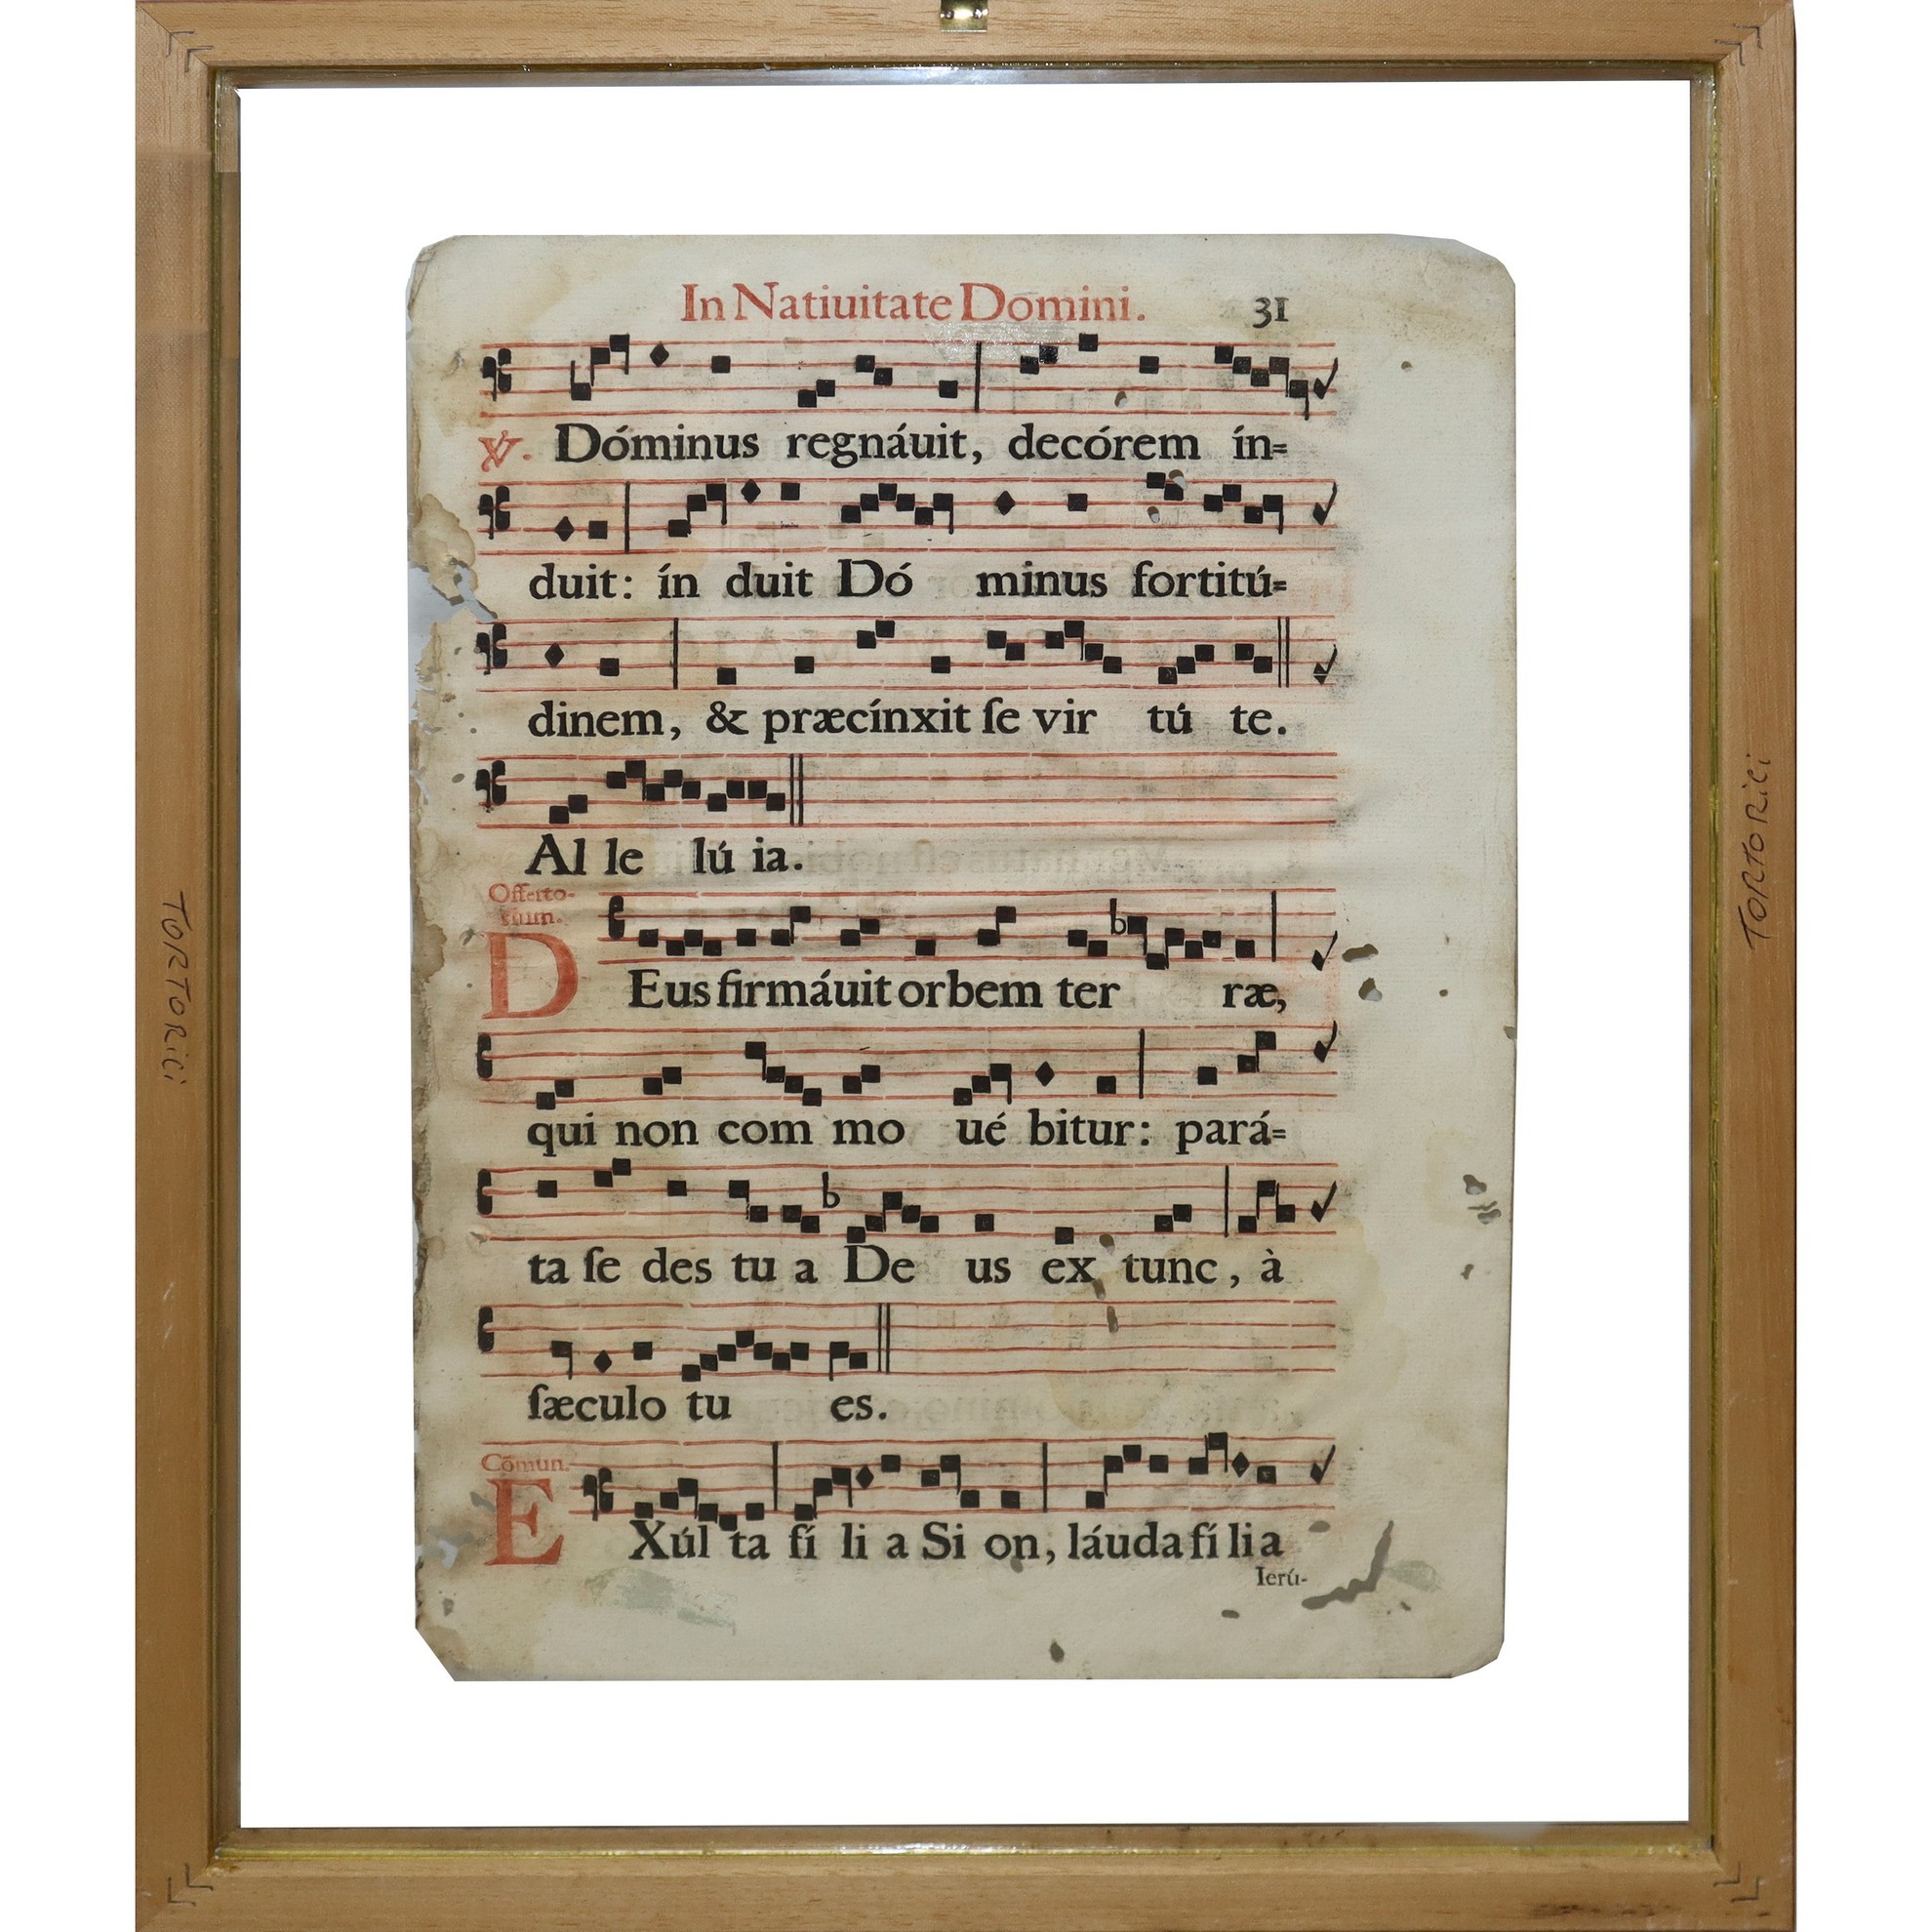 In Natiuitate Domini. 31
℣. Dóminus regnáuit, decórem ín=
duit: ín duit Dó minus fortitú=
dinem, & præcínxit ſe vir tú te.
Al le lú ia.
Offerto-
rium.
DEus firmáuit orbem ter ræ,
qui non com mo ué bitur: pará=
ta ſe des tu a De us ex tunc, à
ſæculo tu es.
Cõmun.
EXúl ta fí li a Si on, láuda fí li a
Ierú-
TORTORiCi
TORTORiCi